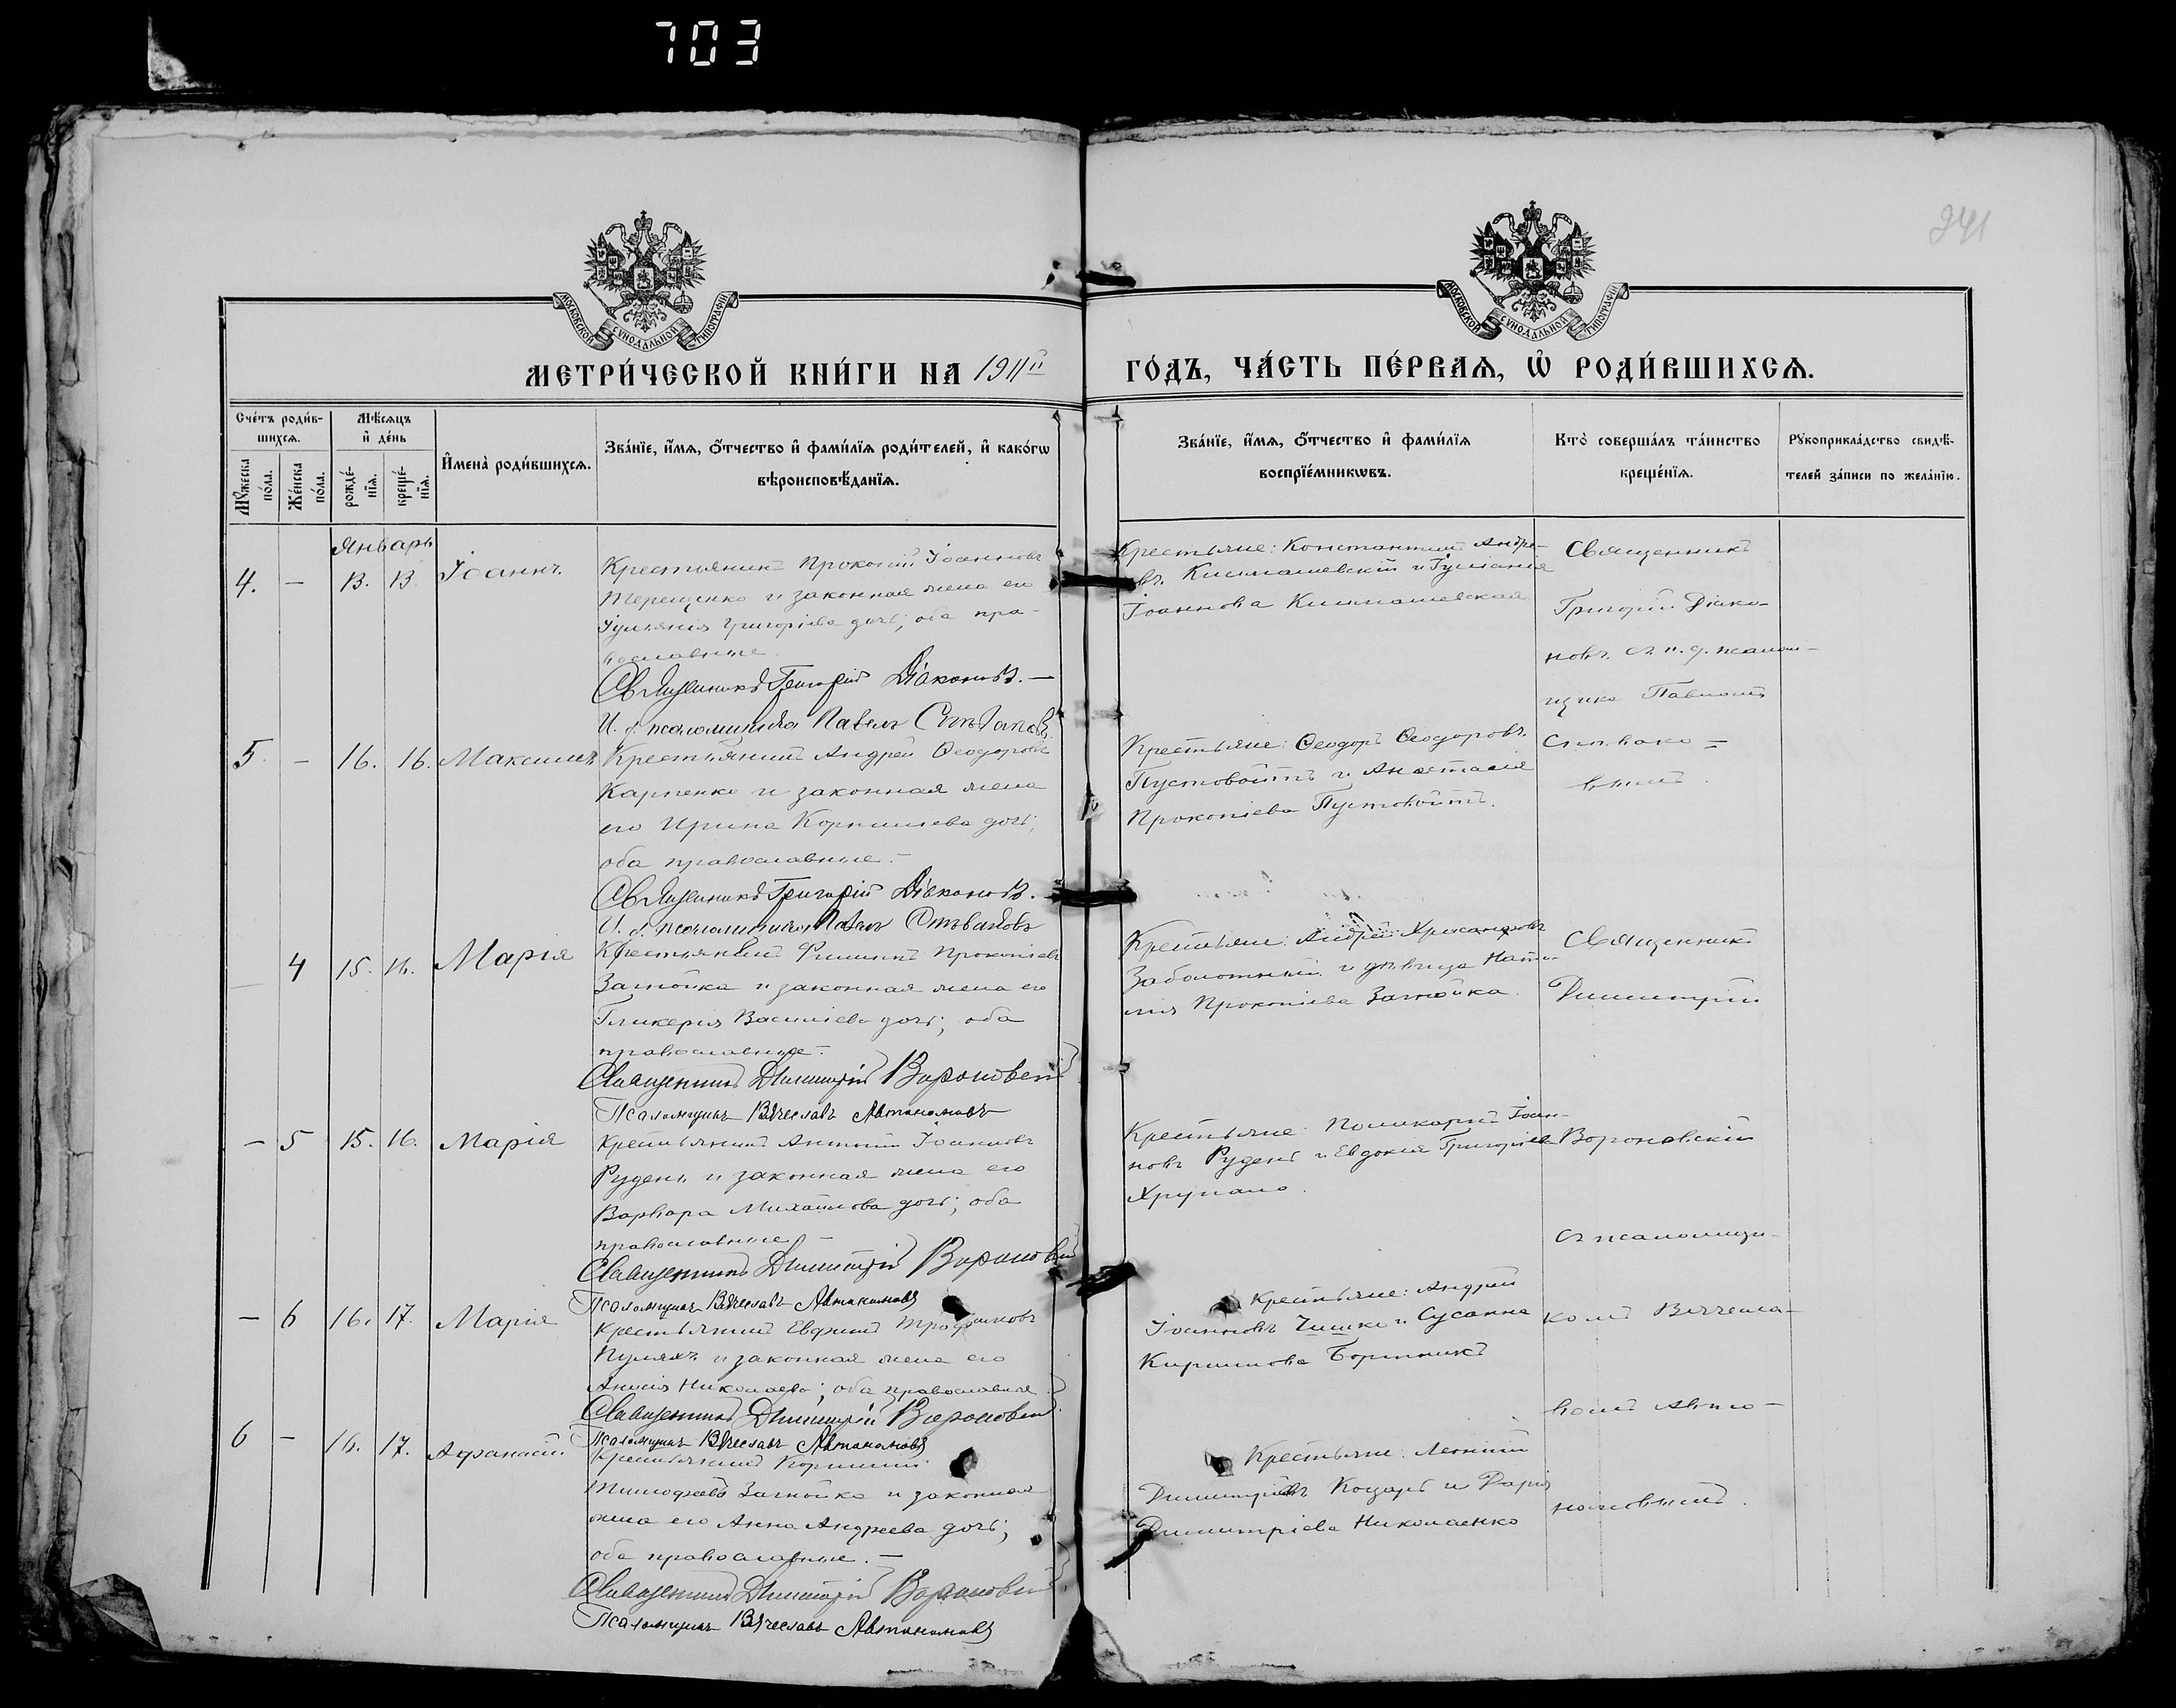 703
241
МОСКОВСКОЙ СѴНОДАЛЬНОЙ ТИПОГРАФІИ
МОСКОВСКОЙ СѴНОДАЛЬНОЙ ТИПОГРАФІИ
МЕТРИ́ЧЕСКОЙ КНИ́ГИ НА 1911й ГО́ДЪ, ЧА́СТЬ ПЕ́РВАѦ, Ѡ҆ РОДИ́ВШИХСѦ.
Сче́тъ роди́в-
шихсѧ.
Мꙋжеска по́ла.
Же́нска по́ла.
Мѣ́сѧцъ
и҆ де́нь
рожде́-
нїѧ.
креще́-
нїѧ.
И҆мена̀ роди́вшихсѧ.
Зва́нїе, и҆́мѧ, ѻ҆́тчество и҆ фами́лїѧ роди́телей, и҆ како́гѡ
вѣроисповѣ́данїѧ.
Зва́нїе, и҆́мѧ, ѻ҆́тчество и҆ фами́лїѧ
воспрїе́мникѡвъ.
Кто̀ соверша́лъ та́инство
креще́нїѧ.
Рꙋкоприкла́дство свидѣ́-
телей за́писи по жела́нїю.
Январь
4. — 13. 13. Іоаннъ.
Крестьянинъ Прокопій Іоанновъ
Терещенко и законная жена его
Іуліанія Григоріева дочь; оба пра-
вославные.
Священникъ Григорій Діаконовъ. —
И. д. псаломщика Павелъ Степановъ
Крестьяне: Константинъ Андре-
евъ и Іуліанія
Іоаннова
Священникъ
Григорій Діако-
новъ съ и. д. псалом-
щика Павломъ
5. — 16. 16. Максимъ
Крестьянинъ Андрей Ѳеодоровъ
Карпенко и законная жена
его Ирина Корнилиева дочь;
оба православные. —
Священникъ Григорій Діаконовъ.
И. д. псаломщика Павелъ
Крестьяне: Ѳеодоръ Ѳеодоровъ
Пустовойтъ и Анастасія
Прокопіева Пустовойтъ.
— 4 15. 16. Марія
Крестьянинъ Филиппъ Прокопіевъ
Загнойка и законная жена его
Гликерія Василіева дочь; оба
православные. —
Священникъ Димитрій Вороновскій
Псаломщикъ Вячеславъ Автономовъ
Крестьяне: Андрей Хрисанфовъ
Заболотный и дѣвица Ната-
лія Прокопіева Загнойка.
Священникъ
Димитрій
— 5 15. 16. Марія
Крестьянинъ Антоній Іоанновъ
Рудень и законная жена его
Варвара Михайлова дочь; оба
православные —
Священникъ Димитрій Вороновскій
Псаломщикъ Вячеславъ Автономовъ
Крестьяне: Поликарпъ Іоан-
новъ Рудень и Евдокія Григоріева
Вороновскій
съ псаломщи-
— 6 16. 17. Марія
Крестьянинъ Евфимій Трофимовъ
и законная жена его
Анисія Николаева; оба православные
Священникъ Димитрій Вороновскій
Псаломщикъ Вячеславъ Автономовъ
Крестьяне: Андрей
Іоанновъ Чишко и Сусанна
Кириллова Бортникъ
комъ Вячесла-
вомъ Авто-
6 — 16. 17. Аѳанасій
Крестьянинъ Корнилій
Тимофеевъ Загнойка и законная
жена его Анна Андреева дочь;
оба православные. —
Священникъ Димитрій Вороновскій
Псаломщикъ Вячеславъ Автономовъ
Крестьяне: Леонтій
Димитріевъ Коцарь и Дарія
Димитріева Николаенко
номовымъ.